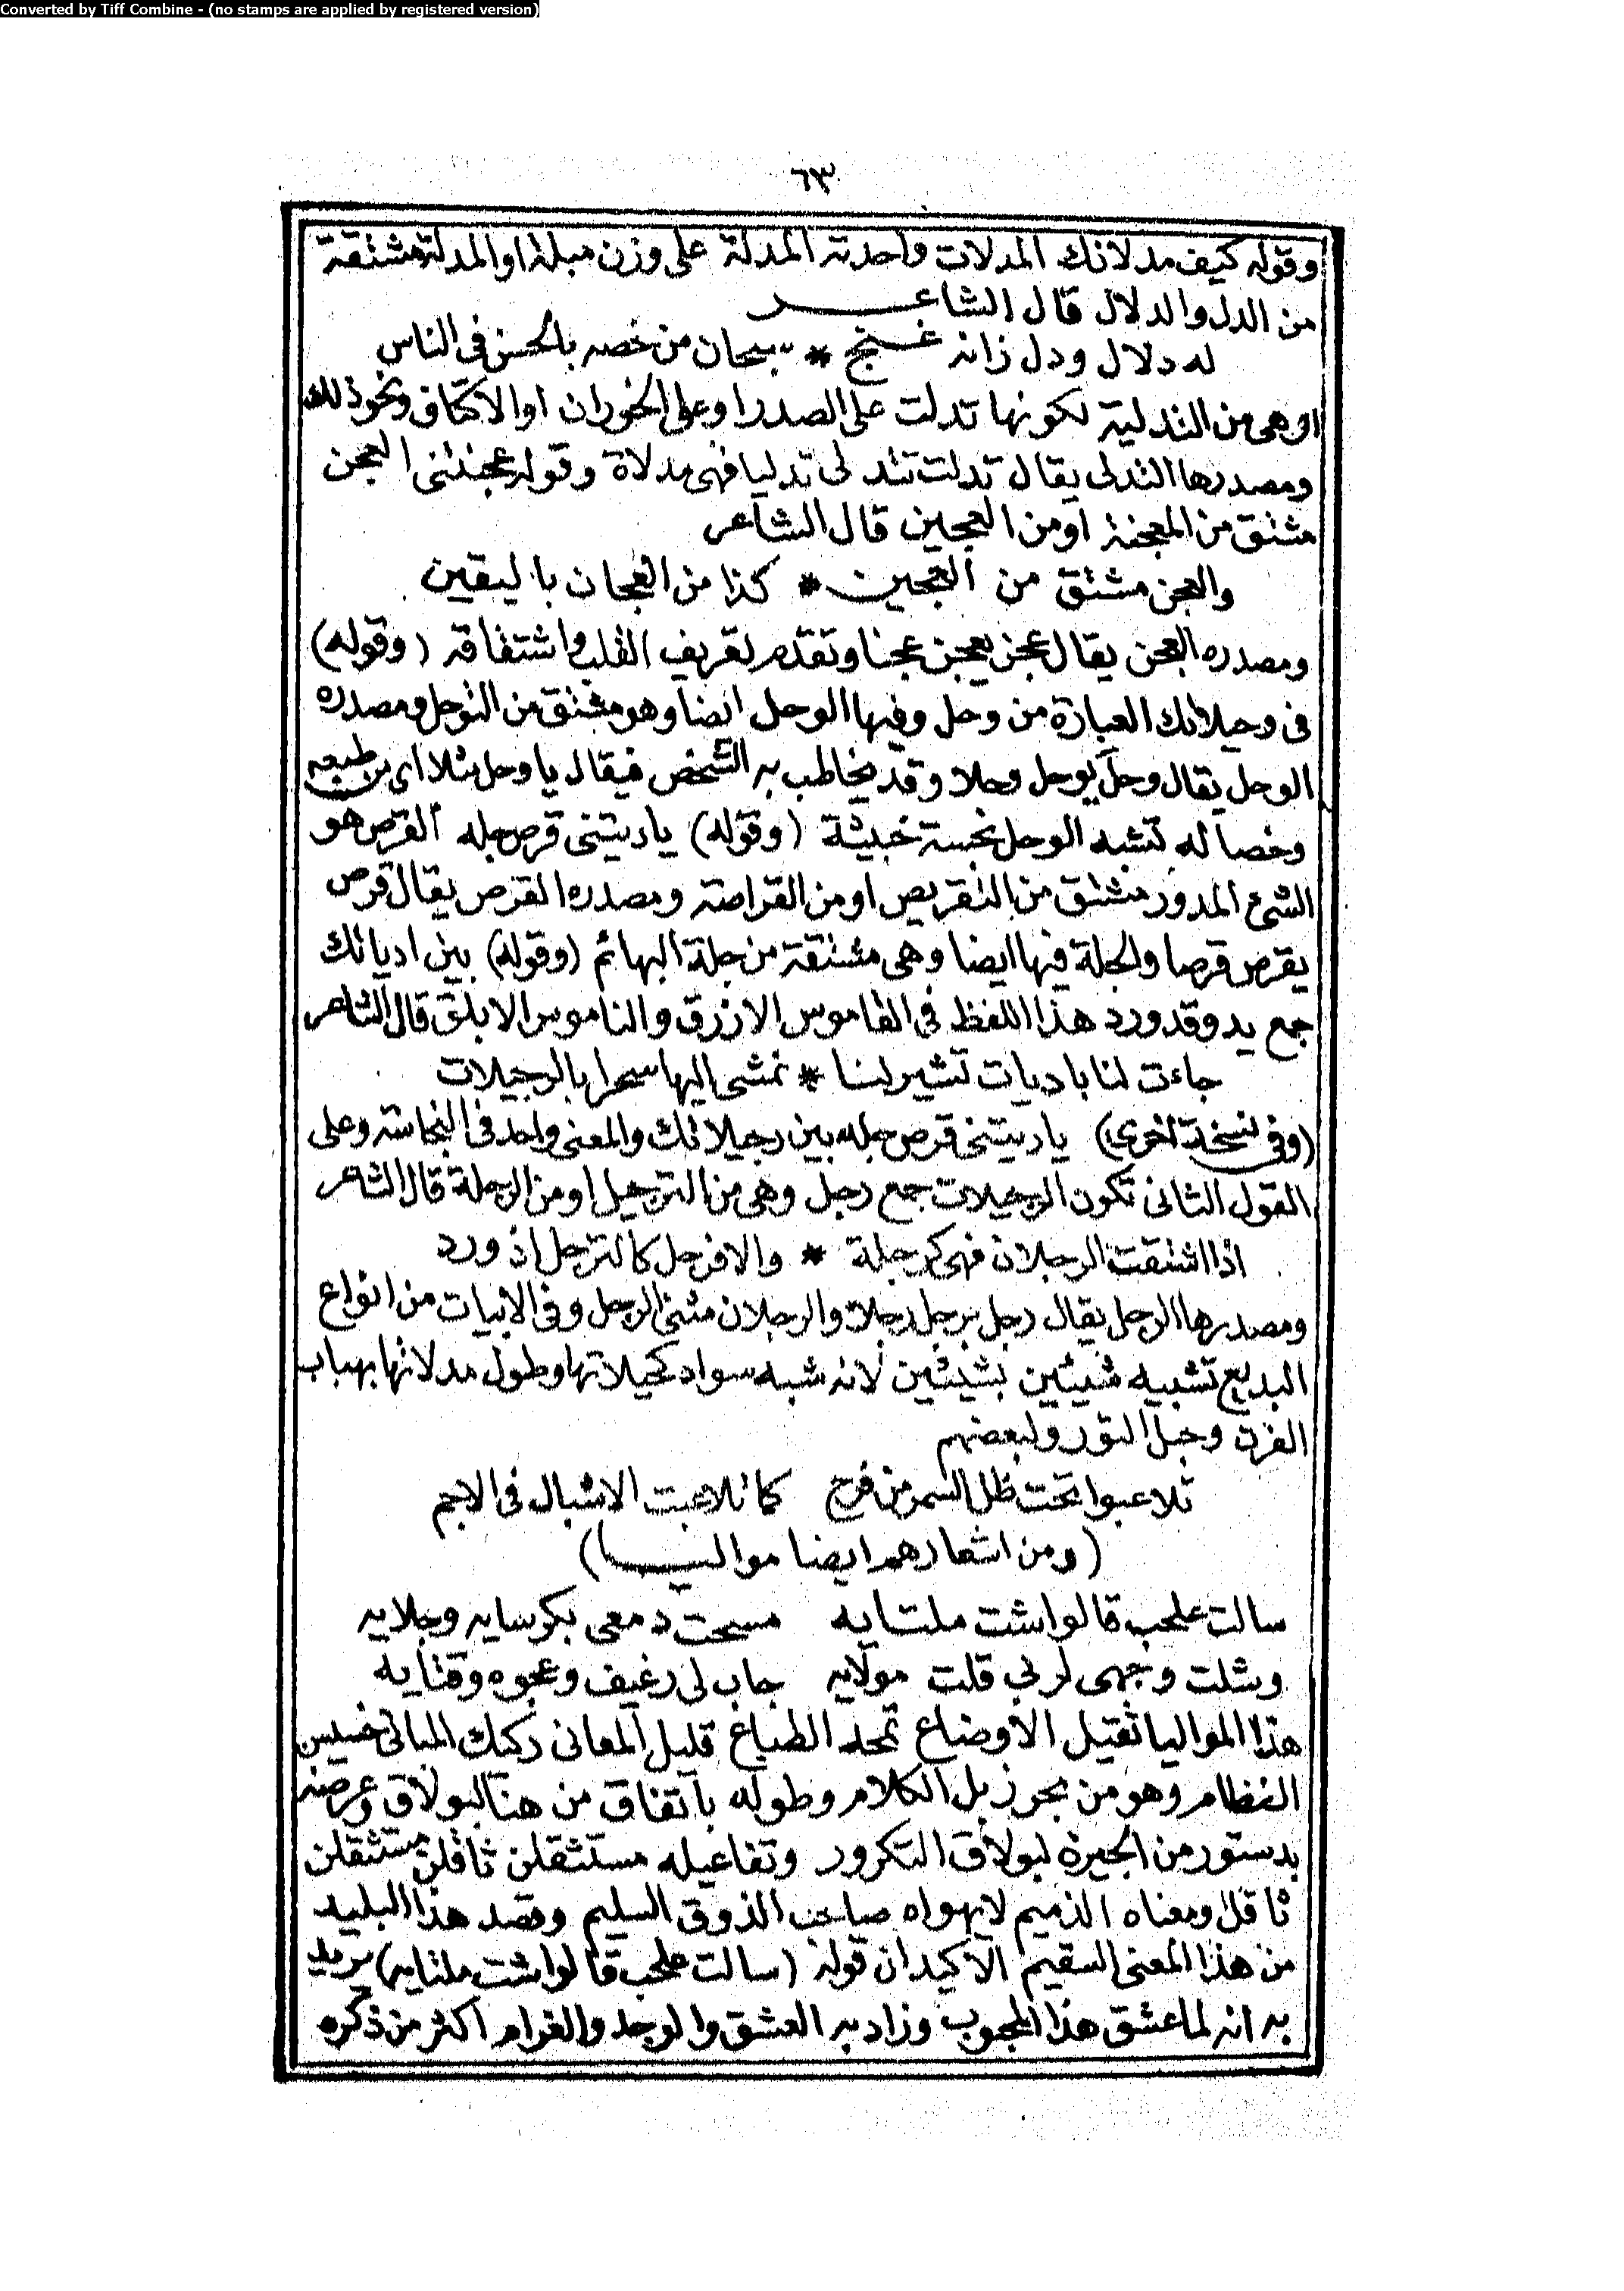 Converted by Tiff Combine - (no stamps are applied by registered version)
٦٣
وقوله كيف مدلاتك المدلات واحدته المدلة على وزن مبلة او المدلة مشتقة
من الدل والدلال قال الشاعر
له دلال ودل زانه غنج * سبحان من خصه بالحسن فى الناس
او هى من التدلية لكونها تدلت على الصدر او على الخوران او الاكتاف ونحو ذلك
ومصدرها التدلى يقال تدلت تتدلى تدليا فهى مدلاة وقوله عجنتنى العجن
مشتق من المعجنة او من العجين قال الشاعر
والعجن مشتق من العجين * كذا من العجان باليقين
ومصدره العجن يقال عجن يعجن عجنا وتقدم تعريف القلب واشتقاقه (وقوله)
فى وحيلاتك العبارة من وحل وفيها الوحل ايضا وهو مشتق من التوحل ومصدره
الوحل يقال وحل يوحل وحلا وقد يخاطب به الشخص فيقال يا وحل مثلا اى من طبيعه
وخصاله تشبه الوحل نجسة خبيثة (وقوله) ياريتنى قرص جله القرص هو
الشئ المدور مشتق من التقريص او من القراصة ومصدره القرص يقال قرص
يقرص قرصا والجلة فيها ايضا وهى مشتقة من جلة البهائم (وقوله) بين ادياتك
جمع يد وقد ورد هذا اللفظ فى القاموس الازرق والناموس الابلق قال الشاعر
جاءت لنا باديات تشير لنا * نمشى اليها سحرا بالرجيلات
(وفى نسخة اخرى) ياريتنى قرص جله بين رجيلاتك والمعنى واحد فى النجاسة وعلى
القول الثانى تكون الرجيلات جمع رجل وهى من الترجيل او من الرجلة قال الشاعر
اذا اشتقت الرجلان فهى كرجلة * والا فرجل كالترجل اذ ورد
ومصدرها الرجل يقال رجل يرجل رجلا والرجلان مثنى الرجل وفى الابيات من انواع
البديع تشبيه شيئين بشيئين لانه شبه سواد كحيلاتها وطول مدلاتها بهباب
الفرن وحبل التور ولبعضهم
تلاعبوا تحت ظل السمر من فرح كما تلاعبت الاشبال فى الاجم
(ومن اشعارهم ايضا مواليــا)
سالت عالحب قالوا شت ملتايه مسحت دمعى بكرسايه وجلايه
وشلت وجهى لربى قلت مولايه جاب لى رغيف وعجوه وقتايه
هذا المواليا ثقيل الاوضاع تمجه الطباع قليل المعانى ركيك المبانى خسيس
النظام وهو من بحر زبل الكلام وطوله باتفاق من هنا لبولاق وعرضه
بدستور من الجيزة لبولاق التكرور وتفاعيله مستثقلن ثاقلن مستثقلن
ثاقل ومعناه الذميم لا يهواه صاحب الذوق السليم وقصد هذا البليد
من هذا المعنى السقيم الاكيد ان قوله (سالت عالحب قالوا شت ملتايه) يريد
به انه لما عشق هذا المحبوب وزاد به العشق والوجد والغرام اكثر من ذكره